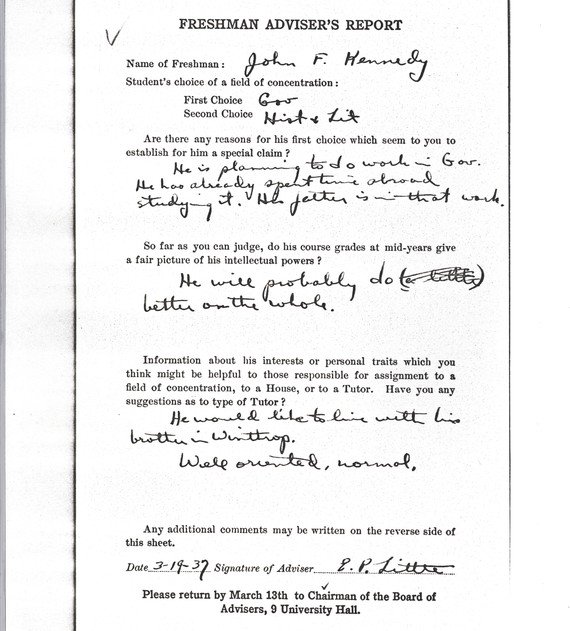 FRESHMAN ADVISER'S REPORT
Name of Freshman: John F. Kennedy
Student's choice of a field of concentration:
First Choice Gov
Second Choice Hist & Lit
Are there any reasons for his first choice which seem to you to
establish for him a special claim?
He is planning to do work in Gov.
He has already spent time abroad
studying it. His father is in that work.
So far as you can judge, do his course grades at mid-years give
a fair picture of his intellectual powers?
He will probably do (a little)
better on the whole.
Information about his interests or personal traits which you
think might be helpful to those responsible for assignment to a
field of concentration, to a House, or to a Tutor. Have you any
suggestions as to type of Tutor?
He would like to live with his
brother in Winthrop.
Well oriented, normal.
Any additional comments may be written on the reverse side of
this sheet.
Date 3-19-37 Signature of Adviser E. P. Little
Please return by March 13th to Chairman of the Board of
Advisers, 9 University Hall.